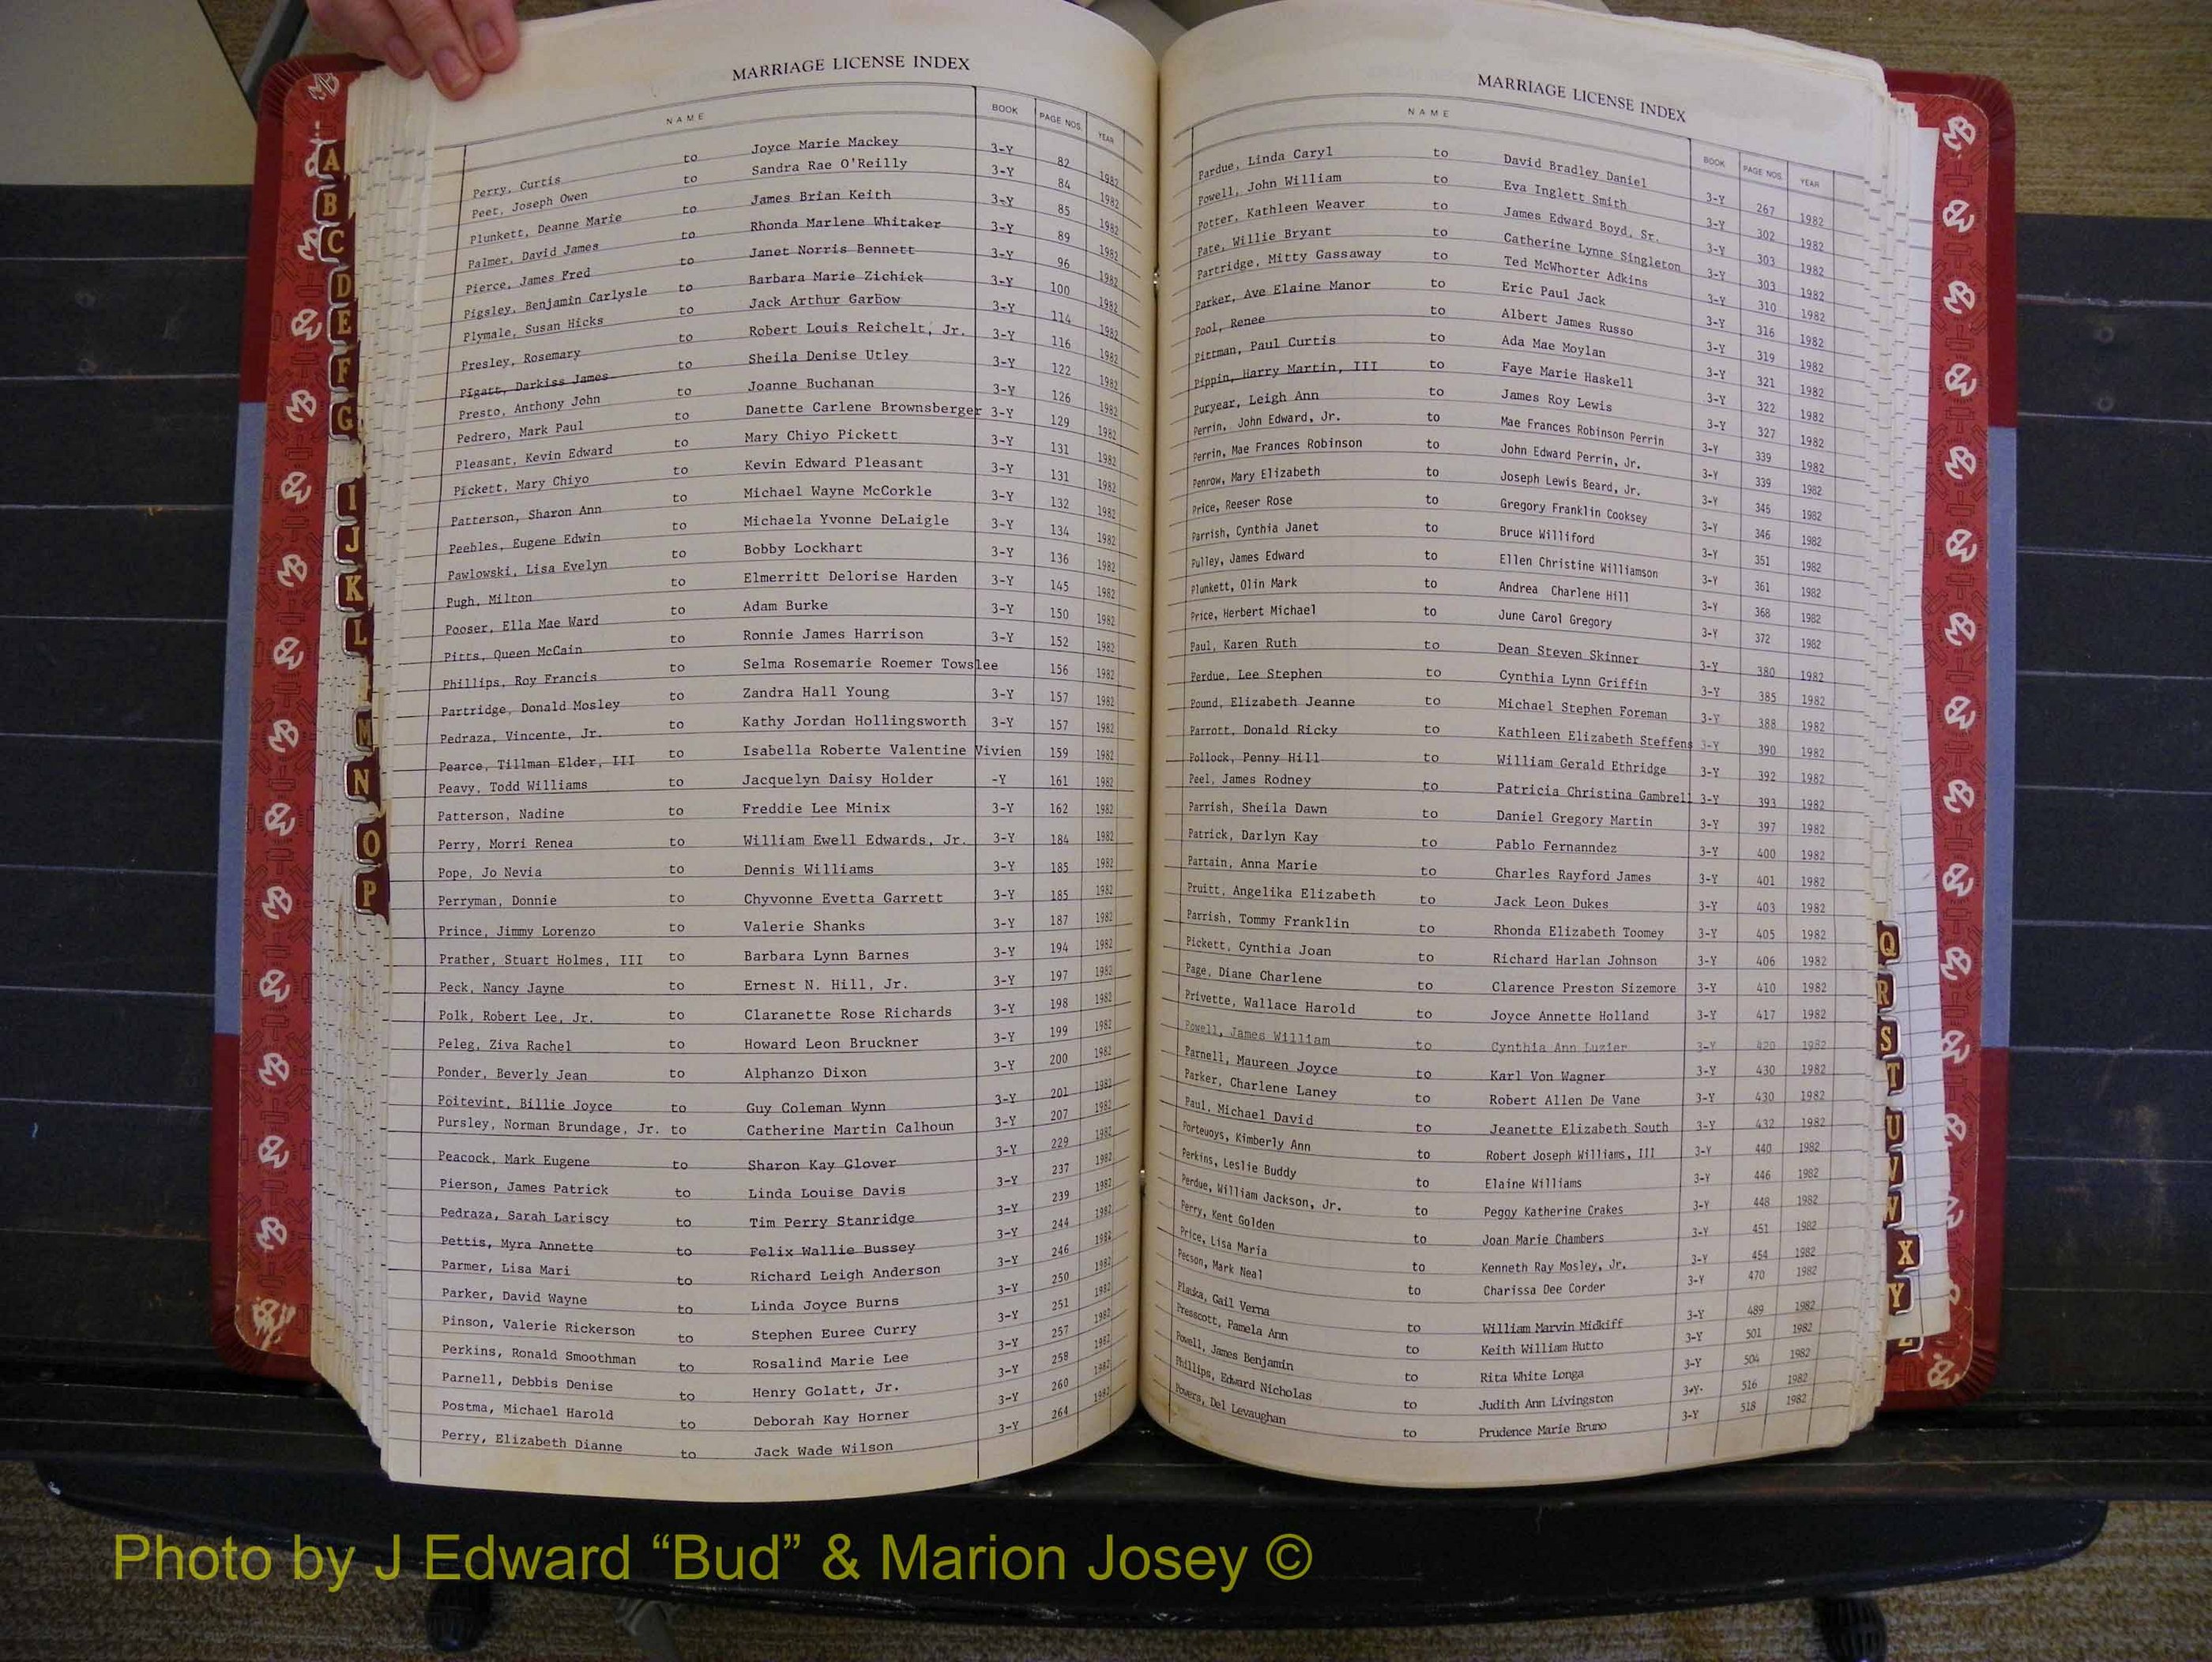 MARRIAGE LICENSE INDEX
NAME BOOK PAGE NOS. YEAR
Perry, Curtis to Joyce Marie Mackey 3-Y 82 1982
Peet, Joseph Owen to Sandra Rae O'Reilly 3-Y 84 1982
Plunkett, Deanne Marie to James Brian Keith 3-Y 85 1982
Palmer, David James to Rhonda Marlene Whitaker 3-Y 89 1982
Pierce, James Fred to Janet Norris Bennett 3-Y 96 1982
Pigsley, Benjamin Carlysle to Barbara Marie Zichiek 3-Y 100 1982
Plymale, Susan Hicks to Jack Arthur Garbow 3-Y 114 1982
Presley, Rosemary to Robert Louis Reichelt, Jr. 3-Y 116 1982
Pigatt, Darkiss James to Sheila Denise Utley 3-Y 122 1982
Presto, Anthony John to Joanne Buchanan 3-Y 126 1982
Pedrero, Mark Paul to Danette Carlene Brownsberger 3-Y 129 1982
Pleasant, Kevin Edward to Mary Chiyo Pickett 3-Y 131 1982
Pickett, Mary Chiyo to Kevin Edward Pleasant 3-Y 131 1982
Patterson, Sharon Ann to Michael Wayne McCorkle 3-Y 132 1982
Peebles, Eugene Edwin to Michaela Yvonne DeLaigle 3-Y 134 1982
Pawlowski, Lisa Evelyn to Bobby Lockhart 3-Y 136 1982
Pugh, Milton to Elmerritt Delorise Harden 3-Y 145 1982
Pooser, Ella Mae Ward to Adam Burke 3-Y 150 1982
Pitts, Queen McCain to Ronnie James Harrison 3-Y 152 1982
Phillips, Roy Francis to Selma Rosemarie Roemer Towslee 156 1982
Partridge, Donald Mosley to Zandra Hall Young 3-Y 157 1982
Pedraza, Vincente, Jr. to Kathy Jordan Hollingsworth 3-Y 157 1982
Pearce, Tillman Elder, III to Isabella Roberte Valentine Vivien 159 1982
Peavy, Todd Williams to Jacquelyn Daisy Holder -Y 161 1982
Patterson, Nadine to Freddie Lee Minix 3-Y 162 1982
Perry, Morri Renea to William Ewell Edwards, Jr. 3-Y 184 1982
Pope, Jo Nevia to Dennis Williams 3-Y 185 1982
Perryman, Donnie to Chyvonne Evetta Garrett 3-Y 185 1982
Prince, Jimmy Lorenzo to Valerie Shanks 3-Y 187 1982
Prather, Stuart Holmes, III to Barbara Lynn Barnes 3-Y 194 1982
Peck, Nancy Jayne to Ernest N. Hill, Jr. 3-Y 197 1982
Polk, Robert Lee, Jr. to Claranette Rose Richards 3-Y 198 1982
Peleg, Ziva Rachel to Howard Leon Bruckner 3-Y 199 1982
Ponder, Beverly Jean to Alphanzo Dixon 3-Y 200 1982
Poitevint, Billie Joyce to Guy Coleman Wynn 3-Y 201 1982
Pursley, Norman Brundage, Jr. to Catherine Martin Calhoun 3-Y 207 1982
Peacock, Mark Eugene to Sharon Kay Glover 3-Y 229 1982
Pierson, James Patrick to Linda Louise Davis 3-Y 237 1982
Pedraza, Sarah Lariscy to Tim Perry Stanridge 3-Y 239 1982
Pettis, Myra Annette to Felix Wallie Bussey 3-Y 244 1982
Parmer, Lisa Mari to Richard Leigh Anderson 3-Y 246 1982
Parker, David Wayne to Linda Joyce Burns 3-Y 250 1982
Pinson, Valerie Rickerson to Stephen Euree Curry 3-Y 251 1982
Perkins, Ronald Smoothman to Rosalind Marie Lee 3-Y 257 1982
Parnell, Debbis Denise to Henry Golatt, Jr. 3-Y 258 1982
Postma, Michael Harold to Deborah Kay Horner 3-Y 260 1982
Perry, Elizabeth Dianne to Jack Wade Wilson 3-Y 264 1982
MARRIAGE LICENSE INDEX
NAME BOOK PAGE NOS. YEAR
Pardue, Linda Caryl to David Bradley Daniel 3-Y 267 1982
Powell, John William to Eva Inglett Smith 3-Y 302 1982
Potter, Kathleen Weaver to James Edward Boyd, Sr. 3-Y 303 1982
Pate, Willie Bryant to Catherine Lynne Singleton 3-Y 303 1982
Partridge, Mitty Gassaway to Ted McWhorter Adkins 3-Y 310 1982
Parker, Ave Elaine Manor to Eric Paul Jack 3-Y 316 1982
Pool, Renee to Albert James Russo 3-Y 319 1982
Pittman, Paul Curtis to Ada Mae Moylan 3-Y 321 1982
Pippin, Harry Martin, III to Faye Marie Haskell 3-Y 322 1982
Puryear, Leigh Ann to James Roy Lewis 3-Y 327 1982
Perrin, John Edward, Jr. to Mae Frances Robinson Perrin 3-Y 339 1982
Perrin, Mae Frances Robinson to John Edward Perrin, Jr. 3-Y 339 1982
Penrow, Mary Elizabeth to Joseph Lewis Beard, Jr. 3-Y 345 1982
Price, Reeser Rose to Gregory Franklin Cooksey 3-Y 346 1982
Parrish, Cynthia Janet to Bruce Williford 3-Y 351 1982
Pulley, James Edward to Ellen Christine Williamson 3-Y 361 1982
Plunkett, Olin Mark to Andrea Charlene Hill 3-Y 368 1982
Price, Herbert Michael to June Carol Gregory 3-Y 372 1982
Paul, Karen Ruth to Dean Steven Skinner 3-Y 380 1982
Perdue, Lee Stephen to Cynthia Lynn Griffin 3-Y 385 1982
Pound, Elizabeth Jeanne to Michael Stephen Foreman 3-Y 388 1982
Parrott, Donald Ricky to Kathleen Elizabeth Steffens 3-Y 390 1982
Pollock, Penny Hill to William Gerald Ethridge 3-Y 392 1982
Peel, James Rodney to Patricia Christina Gambrell 3-Y 393 1982
Parrish, Sheila Dawn to Daniel Gregory Martin 3-Y 397 1982
Patrick, Darlyn Kay to Pablo Fernanndez 3-Y 400 1982
Partain, Anna Marie to Charles Rayford James 3-Y 401 1982
Pruitt, Angelika Elizabeth to Jack Leon Dukes 3-Y 403 1982
Parrish, Tommy Franklin to Rhonda Elizabeth Toomey 3-Y 405 1982
Pickett, Cynthia Joan to Richard Harlan Johnson 3-Y 406 1982
Page, Diane Charlene to Clarence Preston Sizemore 3-Y 410 1982
Privette, Wallace Harold to Joyce Annette Holland 3-Y 417 1982
Powell, James William to Cynthia Ann Luzier 3-Y 420 1982
Parnell, Maureen Joyce to Karl Von Wagner 3-Y 430 1982
Parker, Charlene Laney to Robert Allen De Vane 3-Y 430 1982
Paul, Michael David to Jeanette Elizabeth South 3-Y 432 1982
Porteuoys, Kimberly Ann to Robert Joseph Williams, III 3-Y 440 1982
Perkins, Leslie Buddy to Elaine Williams 3-Y 446 1982
Perdue, William Jackson, Jr. to Peggy Katherine Crakes 3-Y 448 1982
Perry, Kent Golden to Joan Marie Chambers 3-Y 451 1982
Price, Lisa Maria to Kenneth Ray Mosley, Jr. 3-Y 454 1982
Pecson, Mark Neal to Charissa Dee Corder 3-Y 470 1982
Plauka, Gail Verna to William Marvin Midkiff 3-Y 489 1982
Presscott, Pamela Ann to Keith William Hutto 3-Y 501 1982
Powell, James Benjamin to Rita White Longa 3-Y 504 1982
Phillips, Edward Nicholas to Judith Ann Livingston 3-Y 516 1982
Powers, Del Levaughan to Prudence Marie Bruno 3-Y 518 1982
A
B
C
D
E
F
G
I
J
K
L
M
N
O
P
Q
R
S
T
U
V
W
X
Y
Z
Photo by J Edward “Bud” & Marion Josey ©